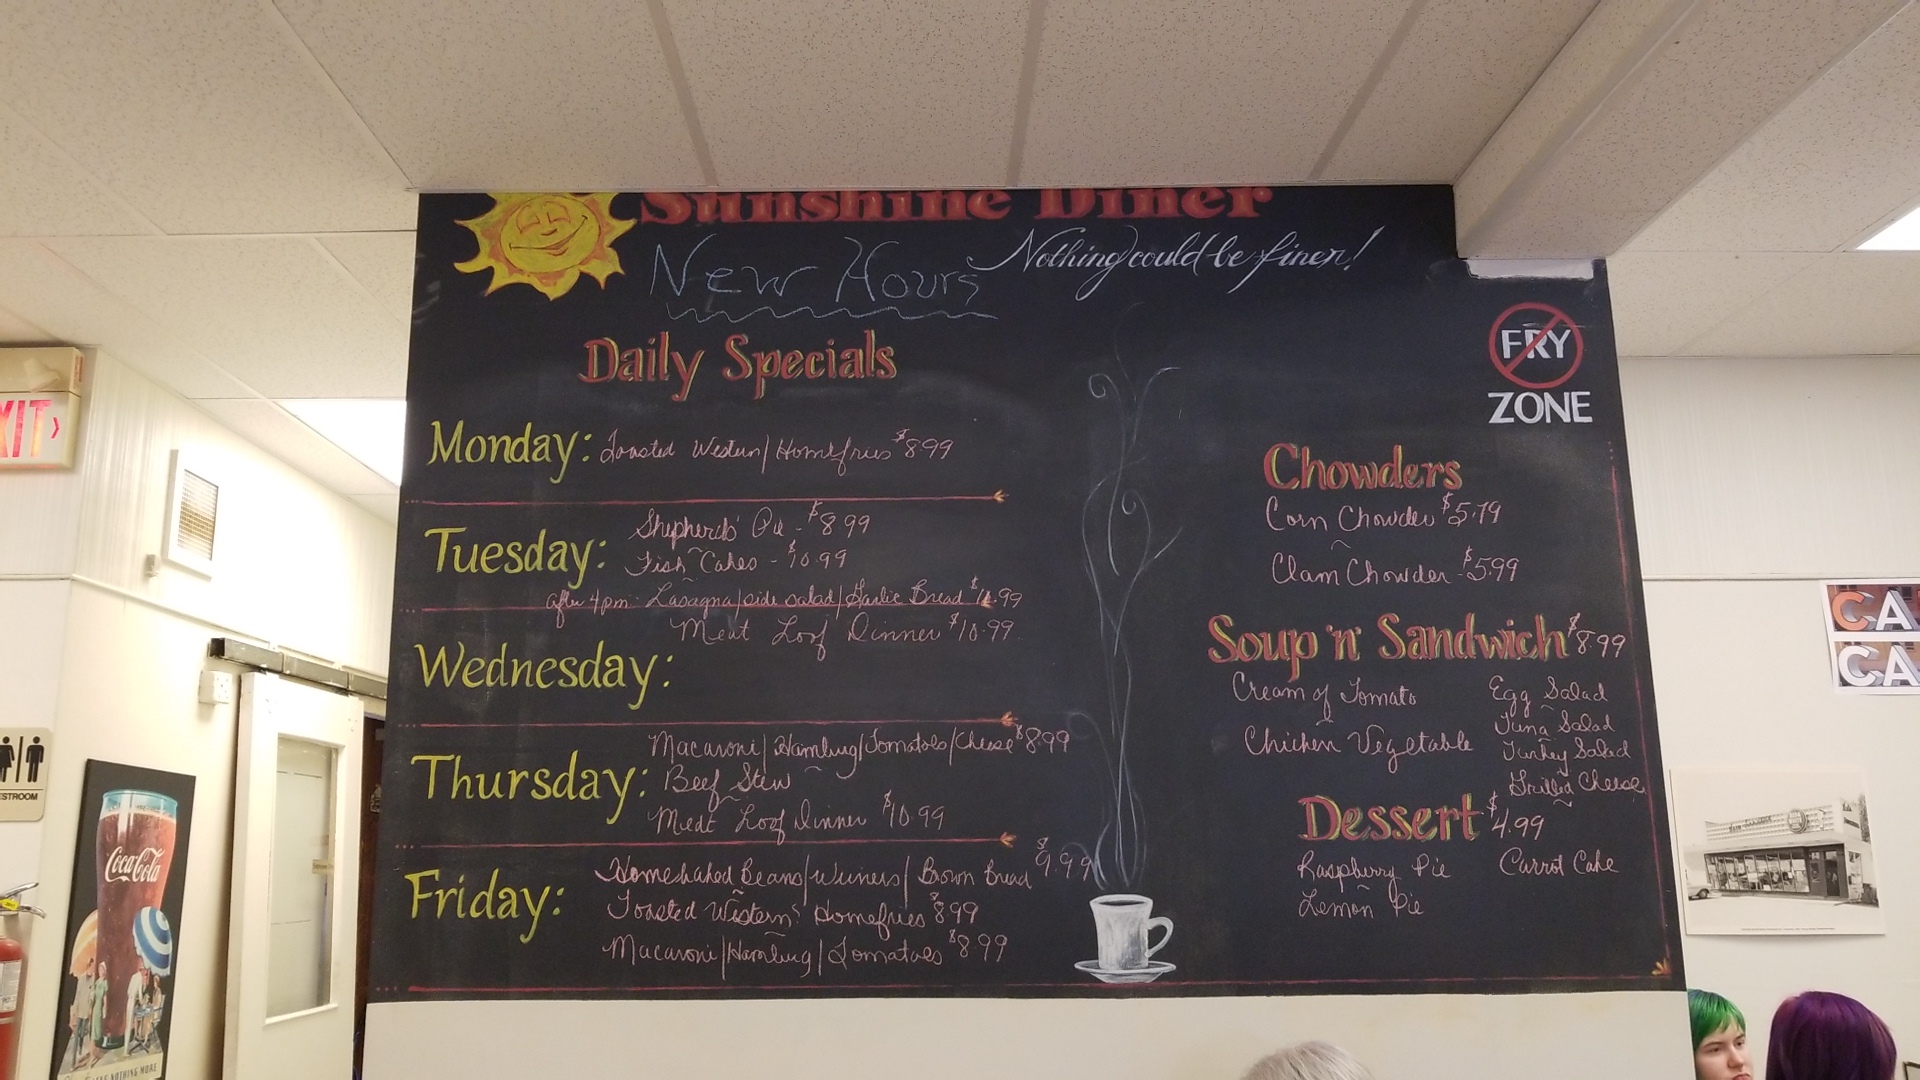 Sunshine Diner
New Hours
Nothing could be finer!
Daily Specials
Monday: Toasted Western/Homefries $8.99
Tuesday: Shepherds' Pie - $8.99
Fish Cakes - $10.99
after 4pm - Lasagna/side salad/Garlic Bread
Meat Loof Dinner $10.99
Wednesday:
Thursday: Macaroni/Hamburg/Tomatoes/Cheese $8.99
Beef Stew
Meat Loof Dinner $10.99
Friday: Homebaked Beans/Weiners/Brown Bread $9.99
Toasted Western Homefries $8.99
Macaroni/Hamburg/Tomatoes $8.99
FRY
ZONE
Chowders
Corn Chowder $5.79
Clam Chowder $5.99
Soup 'n' Sandwich $8.99
Cream of Tomato
Chicken Vegetable
Egg Salad
Tuna Salad
Turkey Salad
Grilled Cheese
Dessert $4.99
Raspberry Pie
Lemon Pie
Carrot Cake
XIT
ESTROOM
Coca-Cola
NOTHING MORE
CA
CA